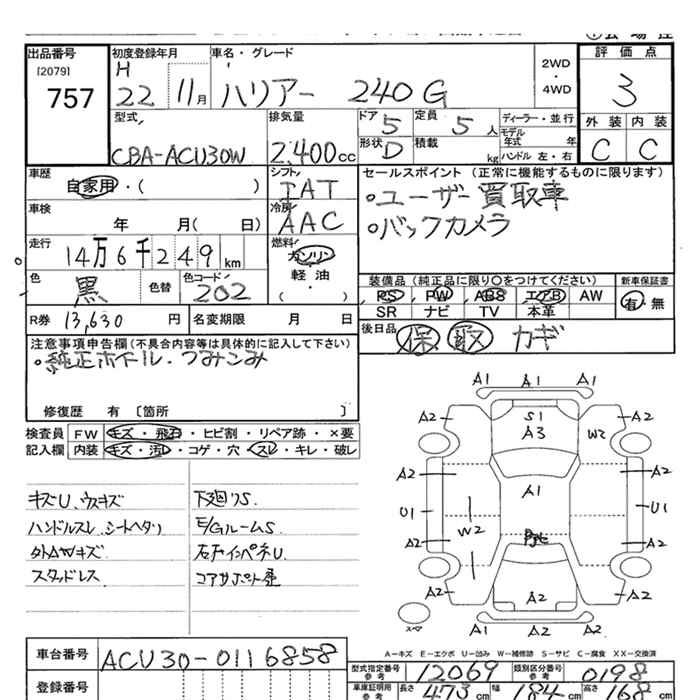 出品番号
[2079]
757
初度登録年月
H
22 11月
車名・グレード
ハリアー 240 G
2WD
・
4WD
評価点
3
外装 内装
C C
型式
CBA-ACU30W
排気量
2,400cc
ドア 5
形状 D
定員 5 人
積載 kg
ディーラー・並行
モデル年式 年
ハンドル 左・右
車歴
自家用・( )
シフト
IAT
車検
年 月( 日)
冷房
AAC
セールスポイント(正常に機能するものに限ります)
。ユーザー買取車
。バックカメラ
走行
14万6千249 km
燃料
ガソリン
軽・油
( )
色
黒
色替
色コード
202
装備品(純正品に限り○をつけてください)
PS PW ABS エアB AW
SR ナビ TV 本革
新車保証書
有・無
R券 13,630 円
名変期限 月 日
後日品
保 取 カギ
注意事項申告欄(不具合内容等は具体的に記入して下さい)
。純正ホイール・つみこみ
修復歴 有 〔箇所 〕
検査員
記入欄
FW キズ・飛石・ヒビ割・リペア跡・×要
内装 キズ・汚レ・コゲ・穴・スレ・キレ・破レ
キズU、ウスキズ
ハンドルスレ シートヘタリ
外AWキズ
スタッドレス
下廻りS.
E/GルームS
右下インパネU
コアサポート歪
A1 A1
A2 S1 A2
A3 W2
A2 A1 A2
U1 U1
W2
A2 A2
A2 A2 A2
A1 A2 A2
スペア
A-キズ E-エクボ U-凹み W-補修跡 S-サビ C-腐食 XX-交換済
車台番号 ACU30-0116858
登録番号
型式指定番号
参考
12069
類別区分番号
参考
0198
車庫証明用
参考
長さ 473 cm 幅 184 cm 高さ 168 cm